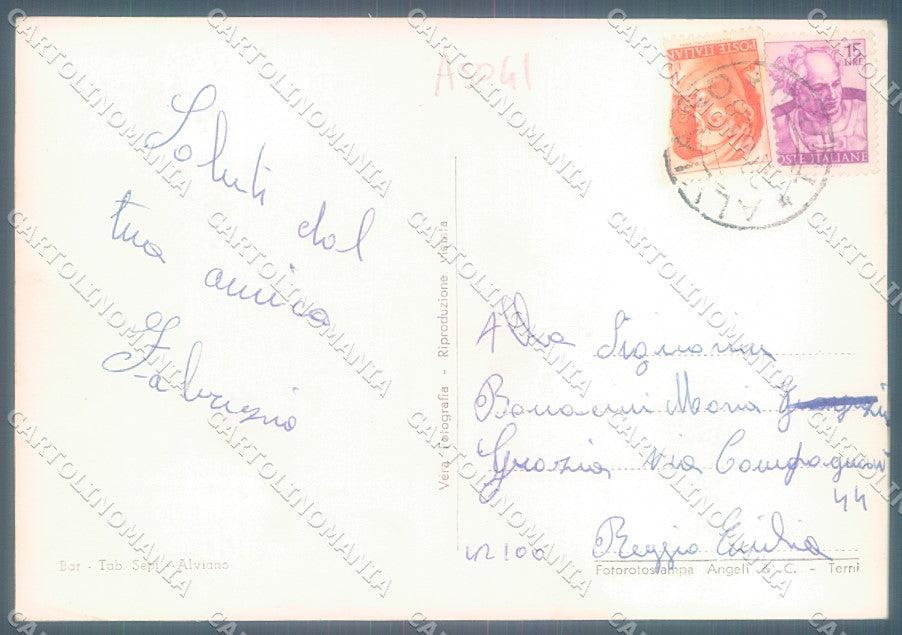 A5041
POSTE ITALIANE
15
POSTE ITALIANE
ALVIANO
Saluti dal
tuo amico
Fabrizio
Vera Fotografia - Riproduzione vietata
Alla Signorina
Bonacini Maria
Grazia Via Compagnoni
44
42100 Reggio Emilia
Bar - Tab. Sept - Alviano
Fotorotostampa Angeli & C. - Terni
CARTOLINOMANIA